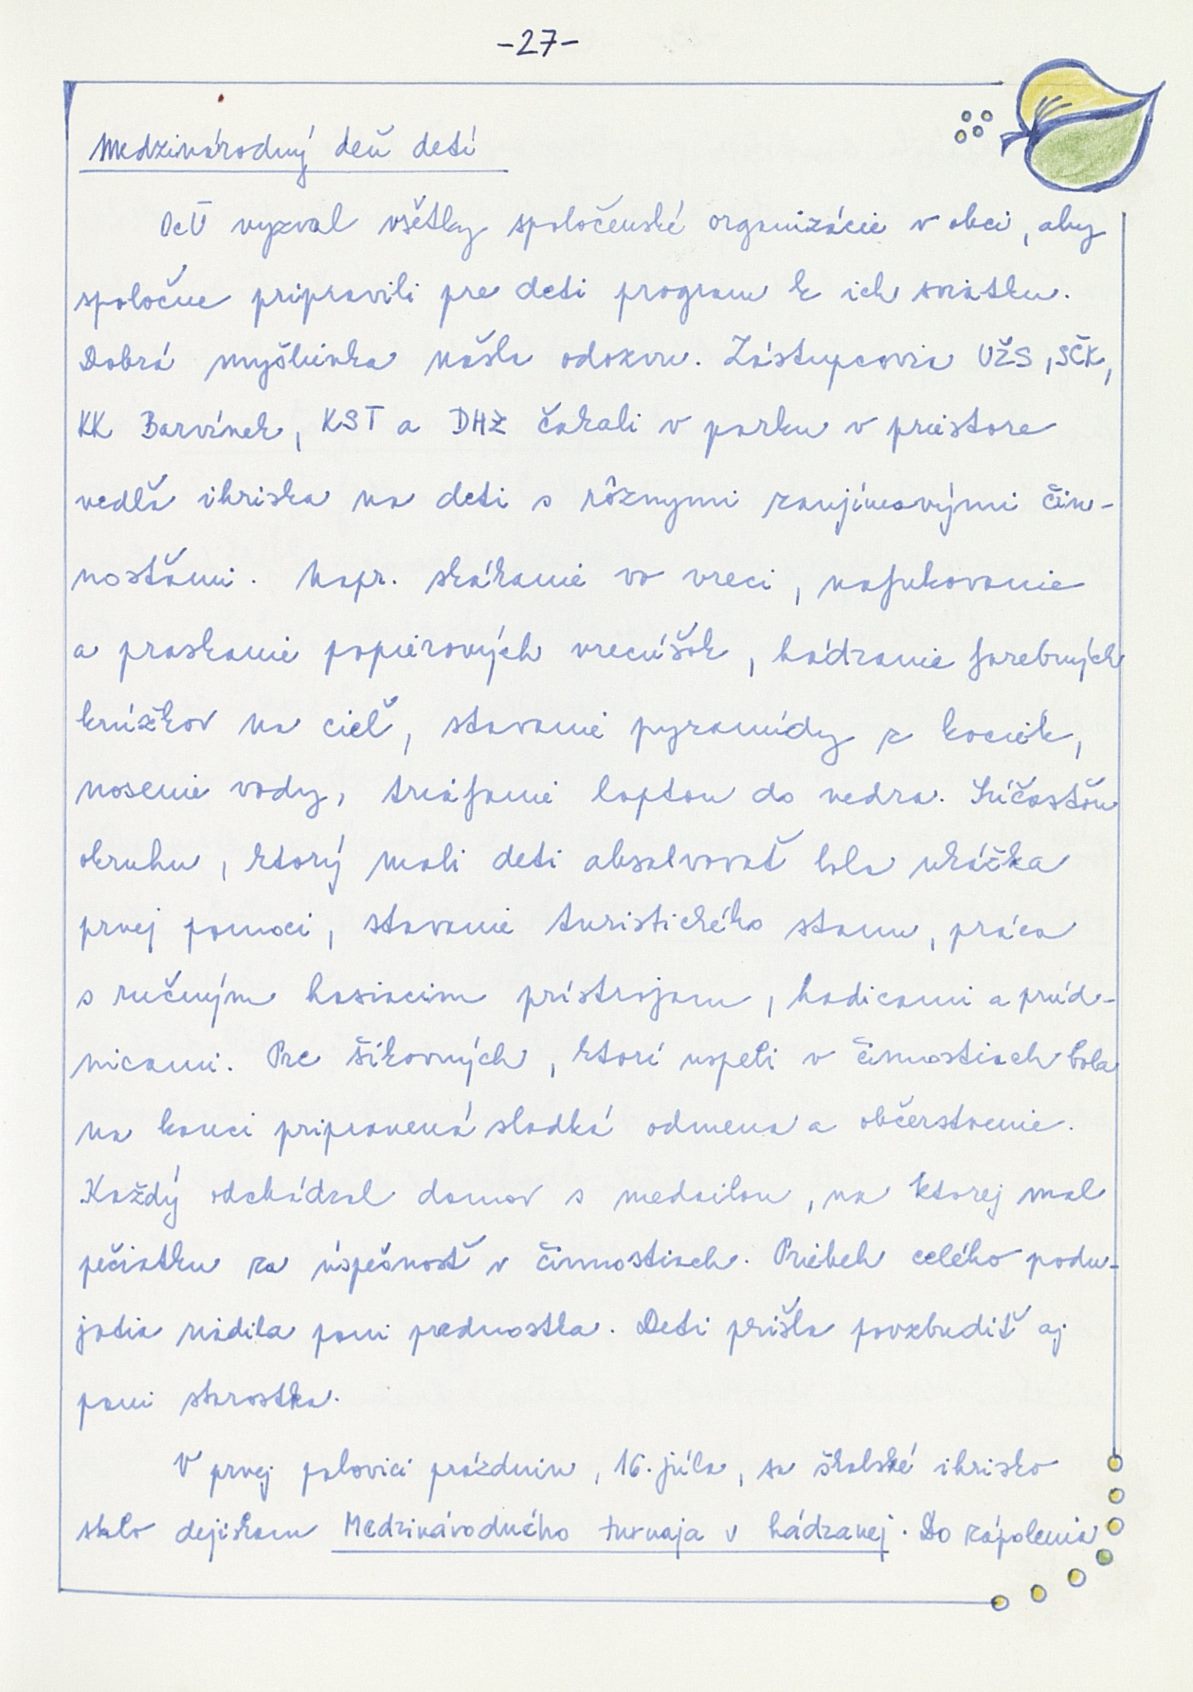 -27-
Medzinárodný deň detí
OcÚ vyzval všetky spoločenské organizácie v obci, aby
spoločne pripravili pre deti program k ich sviatku.
Dobrá myšlienka našla odozvu. Zástupcovia UŽS, SČK,
KK Barvínek, KST a DHZ čakali v parku v priestore
vedľa ihriska na deti s rôznymi zaujímavými čin-
nosťami. Napr. skákanie vo vreci, nafukovanie
a praskanie papierových vrecúšok, hádzanie farebných
krúžkov na cieľ, stavanie pyramídy z kociek,
nosenie vody, triafanie loptou do vedra. Súčasťou
okruhu, ktorý mali deti absolvovať bola ukážka
prvej pomoci, stavanie turistického stanu, práca
s ručným hasiacim prístrojom, hadicami a prúd-
nicami. Pre šikovných, ktorí uspeli v činnostiach bola
na konci pripravená sladká odmena a občerstvenie.
Každý odchádzal domov s medailou, na ktorej mal
pečiatku za úspešnosť v činnostiach. Priebeh celého podu-
jatia riadila pani prednostka. Deti prišla povzbudiť aj
pani starostka.
V prvej polovici prázdnin, 16. júla, sa školské ihrisko
stalo dejiskom Medzinárodného turnaja v hádzanej. Do zápolenia